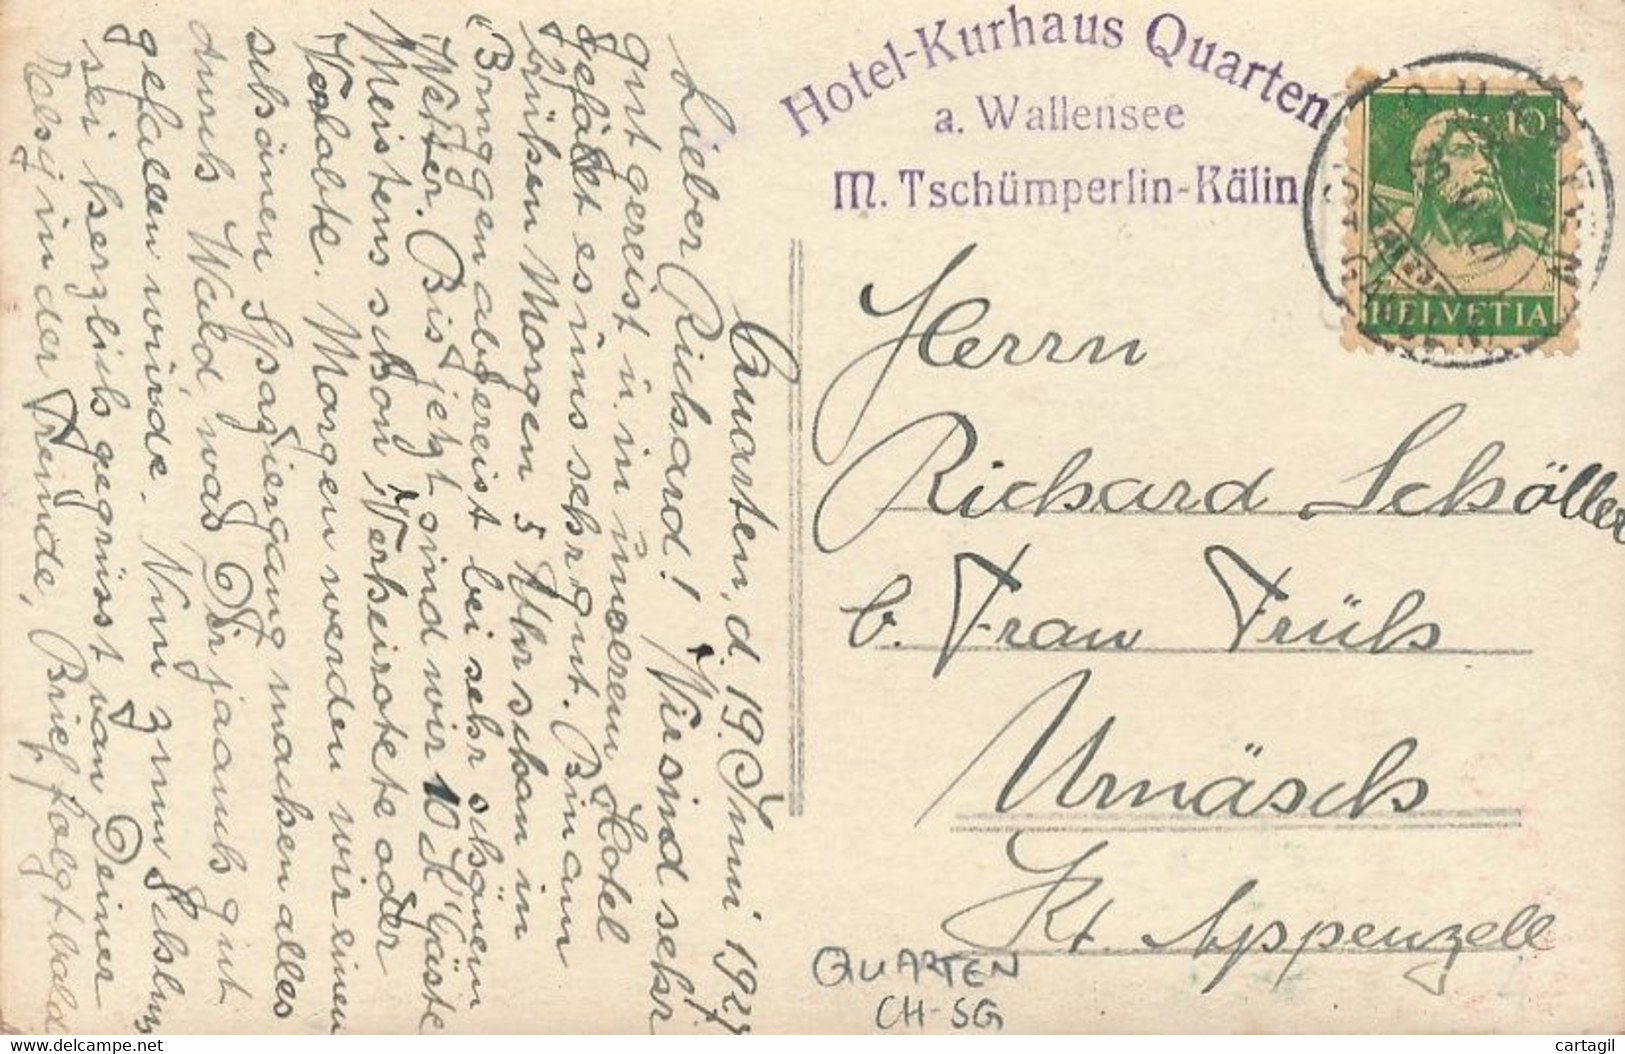 Hotel-Kurhaus Quarten
a. Wallensee
M. Tschümperlin-Kälin
10
HELVETIA
QUARTEN
Quarten, d. 19. Juni 192
Lieber Richard! Wir sind sehr
gut gereist u. in unserem Hotel
gefällt es uns sehr gut. Bin am
frühen Morgen 5 Uhr schon in
Bruggen abgereist bei sehr schönem
Wetter. Bis jetzt sind wir 10 K'Gäste
Meistens schon Verheiratete oder
Verlobte. Morgen werden wir einen
schönen Spaziergang machen alles
durch Wald, was Dir ja auch gut
gefallen würde. Nun zum Schluss
sei herzlich gegrüsst von Deiner
in der Freinde, Brief folgt bald
Herrn
Richard Schöller
b. Frau Früh
Urnäsch
Kt. Appenzell
QUARTEN
CH-SG
cartagil